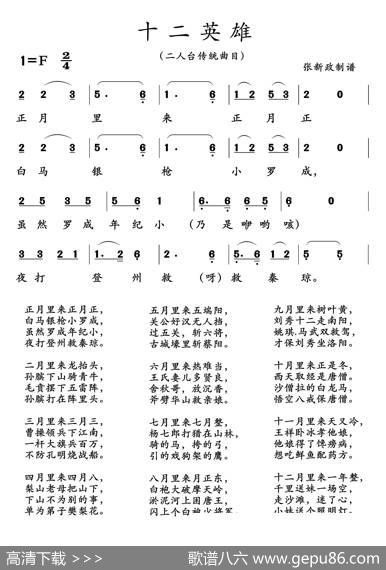 十二英雄
(二人台传统曲目)
1=F 2/4
张新政制谱
2 2 3 | 5· 6 | 1· 6 | 1 2 5 3 | 2 0 |
正 月 里 来 正 月 正
2 2 3 | 5· 6 | 1· 6 | 1 2 5 3 | 2 0 |
白 马 银 枪 小 罗 成，
2 5 3 5 | 5 6 1 | 6· 6 6 5 | 5 0 |
虽 然 罗 成 年 纪 小 (乃 是 咿 哟 咳)
3 3 2 1 | 1· 2 | 2· 6 | 5 6 3 2 | 5 5 |
夜 打 登 州 救 (呀) 救 秦 琼。
正月里来正月正，
白马银枪小罗成，
虽然罗成年纪小，
夜打登州救秦琼。
二月里来龙抬头，
孙膑下山骑青牛，
毛贲摆下五雷阵，
孙膑打在阵里头。
三月里来三月三，
曹操领兵下江南，
一杆大旗兵百万，
不防孔明烧战船。
四月里来四月八，
梨山老母把山下，
下山不为别的事，
单为弟子樊梨花。
五月里来五端阳，
关公好汉无人挡，
过五关，斩六将，
古城壕里斩蔡阳。
六月里来热难当，
王氏妻儿多贤良，
舍秋哥，放沉香，
斧劈华山救亲娘。
七月里来七月整，
杨七郎打猎在山林，
骑的马，挎的弓，
引的戏狗架的鹰。
八月里来月正东，
白袍大破摩天岭，
淤泥河上困唐王，
闪上个白袍小将军
九月里来树叶黄，
刘秀十二走南阳，
姚琪、马武双救驾，
才保刘秀坐洛阳。
十月里来正是冬，
西天取经是唐僧。
沙僧拉的白龙马，
悟空八戒保唐僧。
十一月里来天又冷，
王祥卧冰孝他娘，
他娘得了馋痨病，
想吃鲜鱼配药方。
十二月里来一年整，
千里送妹一场空，
走沙滩，迷了心，
小妹送个照明灯
高清下载 >>>
歌谱八六 www.gepu86.com